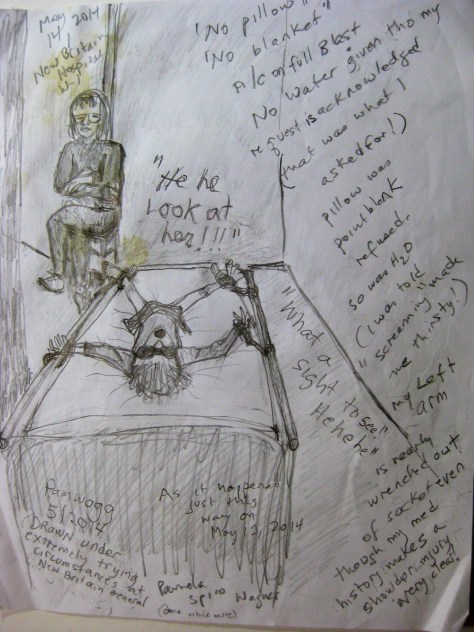 May
14, 2014
New Britain
Hospital
"No pillow"
"No blanket"
A/C on full Blast
No water given tho my
request is acknowledged
(that was what I
asked for!)
pillow was
point blank
refused.
so was H2O
(I was told
"screaming made
me thirsty!)
"He he
Look at
her!!!"
"What a
sight to see."
Hehehe"
My Left
arm
is nearly
wrenched out
of socket even
though my med
history makes a
shoulder injury
very clear!
Pamwagg
5/2014
DRAWN under
extremely trying
circumstances at
New Britain General
As it happened
just this
way on
May 12, 2014
Pamela
Spiro Wagner
(done while mute)